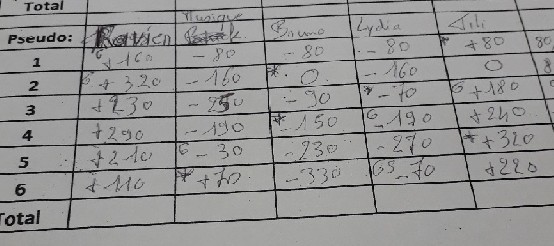 Total
Musique
Pseudo: Bruno Lydia
1 +160 -80 -80 -80 * +80 80
2 G +320 -160 * 0 -160 0 8
3 +230 -250 -90 * -70 G +180
4 +290 -190 * -150 G -190 +240
5 +210 G -30 -230 -270 * +320
6 +110 * +70 -330 GS -70 +220
Total